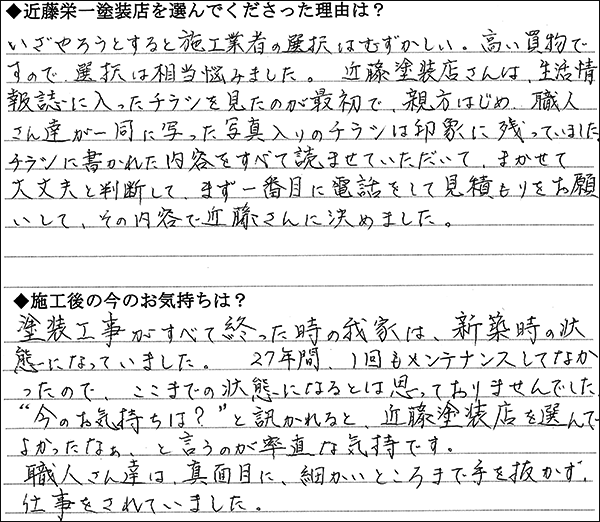 ◆近藤栄一塗装店を選んでくださった理由は？
いざやろうとすると施工業者の選択はむずかしい。高い買物で
すので、選択は相当悩みました。 近藤塗装店さんは、生活情
報誌に入ったチラシを見たのが最初で、親方はじめ、職人
さん達が一同に写った写真入りのチラシは印象に残っていました
チラシに書かれた内容をすべて読ませていただいて、まかせて
大丈夫と判断して、まず一番目に電話をして見積もりをお願
いして、その内容で近藤さんに決めました。
◆施工後の今のお気持ちは？
塗装工事がすべて終った時の我家は、新築時の状
態になっていました。 27年間、1回もメンテナンスしてなか
ったので、ここまでの状態になるとは思っておりませんでした
“今のお気持ちは？”と訊かれると、近藤塗装店を選んで
よかったなぁ、と言うのが率直な気持です。
職人さん達は、真面目に、細かいところまで手を抜かず、
仕事をされていました。